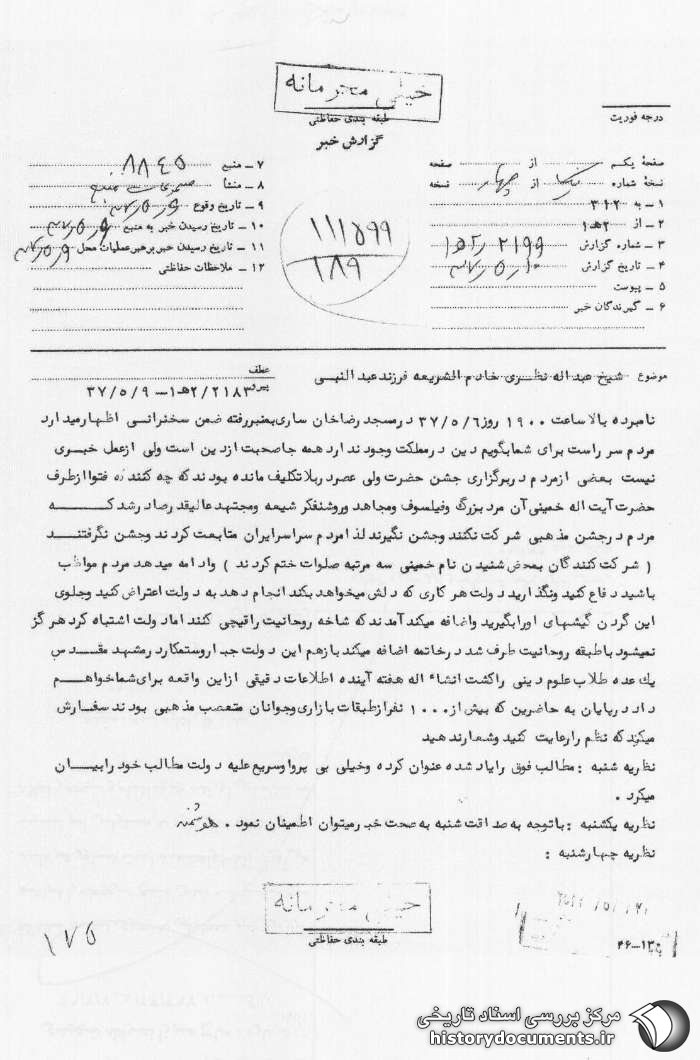 خیلی محرمانه
طبقه بندی حفاظتی
گزارش خبر
درجه فوریت
صفحهٔ یکم از صفحه
نسخهٔ شماره یک از چهار نسخه
۱ ـ به ۳۱۲
۲ ـ از ۲هـ۱
۳ ـ شماره گزارش
۴ ـ تاریخ گزارش
۵ ـ پیوست
۶ ـ گیرندگان خبر
۷ ـ منبع ۸۸۴۵
۸ ـ منشأ
۹ ـ تاریخ وقوع
۱۰ ـ تاریخ رسیدن خبر به منبع
۱۱ ـ تاریخ رسیدن خبر برهبر عملیات محل
۱۲ ـ ملاحظات حفاظتی
۱۱۱۵۹۹
۱۸۹
موضوع شیخ عبداله نظری خادم الشریعه فرزند عبدالنبی
عطف
پیرو ۲/۲۱۸۳هـ۱ـ ۳۷/۵/۹
نامبرده بالا ساعت ۱۹۰۰ روز ۳۷/۵/۶ در مسجد رضاخان ساری بمنبر رفته ضمن سخنرانسی اظهار میدارد
مردم سر راست برای شما بگویم دین در مملکت وجود ندارد همه جا صحبت از دین است ولی از عمل خبسری
نیست بعضی از مردم در برگزاری جشن حضرت ولی عصر در بلاتکلیف مانده بودند که چه کنند که فتوا از طرف
حضرت آیت اله خمینی آن مرد بزرگ وفیلسوف ومجاهد وروشنفکر شیعه ومجتهد عالیقدر صادر شد کـــــه
مردم در جشن مذهبی شرکت نکنند وجشن نگیرند لذا مردم سراسر ایران متابعت کردند وجشن نگرفتنــــد
( شرکت کنندگان بمحض شنیدن نام خمینی سه مرتبه صلوات ختم کردند ) وادامه میدهد مردم مواظب
باشید دفاع کنید ونگذارید دولت هر کاری که دلش میخواهد بکند انجام دهد به دولت اعتراض کنید وجلوی
این گردن کیشهای اورا بگیرید واضافه میکند آمدند که شاخه روحانیت را قیچی کنند اما دولت اشتباه کرد هرگز
نمیشود با طبقه روحانیت طرف شد در خاتمه اضافه میکند باز هم این دولت جبار وستمکار در مشهد مقـــدس
یک عده طلاب علوم دینی را کشت انشاء اله هفته آینده اطلاعات دقیقی از این واقعه برای شما خواهـــم
داد در پایان به حاضرین که بیش از ۱۰۰۰ نفر از طبقات بازاری وجوانان متعصب مذهبی بودند سفارش
میکند که نظم را رعایت کنید وشعار ندهید
نظریه شنبه : مطالب فوق را یاد شده عنوان کرده وخیلی بی پروا وسریع علیه دولت مطالب خود را بیـــان
میکرد .
نظریه یکشنبه : با توجه به صداقت شنبه به صحت خبر میتوان اطمینان نمود .
نظریه چهارشنبه :
خیلی محرمانه
طبقه بندی حفاظتی
۱۷۵
۴۶ـ۱۳
مرکز بررسی اسناد تاریخی
historydocuments.ir